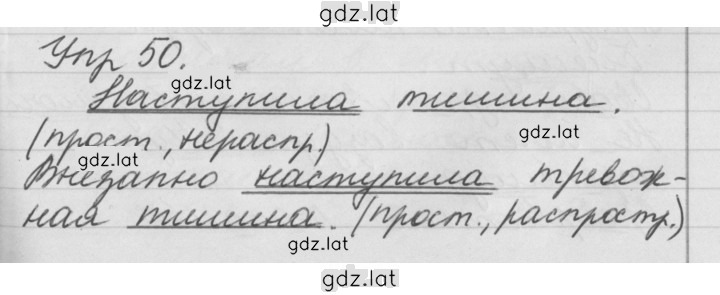 gdz.lat
Упр 50.
gdz.lat
Наступила тишина.
gdz.lat
(прост., нераспр.)
gdz.lat
Внезапно наступила тревож-
ная тишина. (прост., распростр.)
gdz.lat
gdz.lat